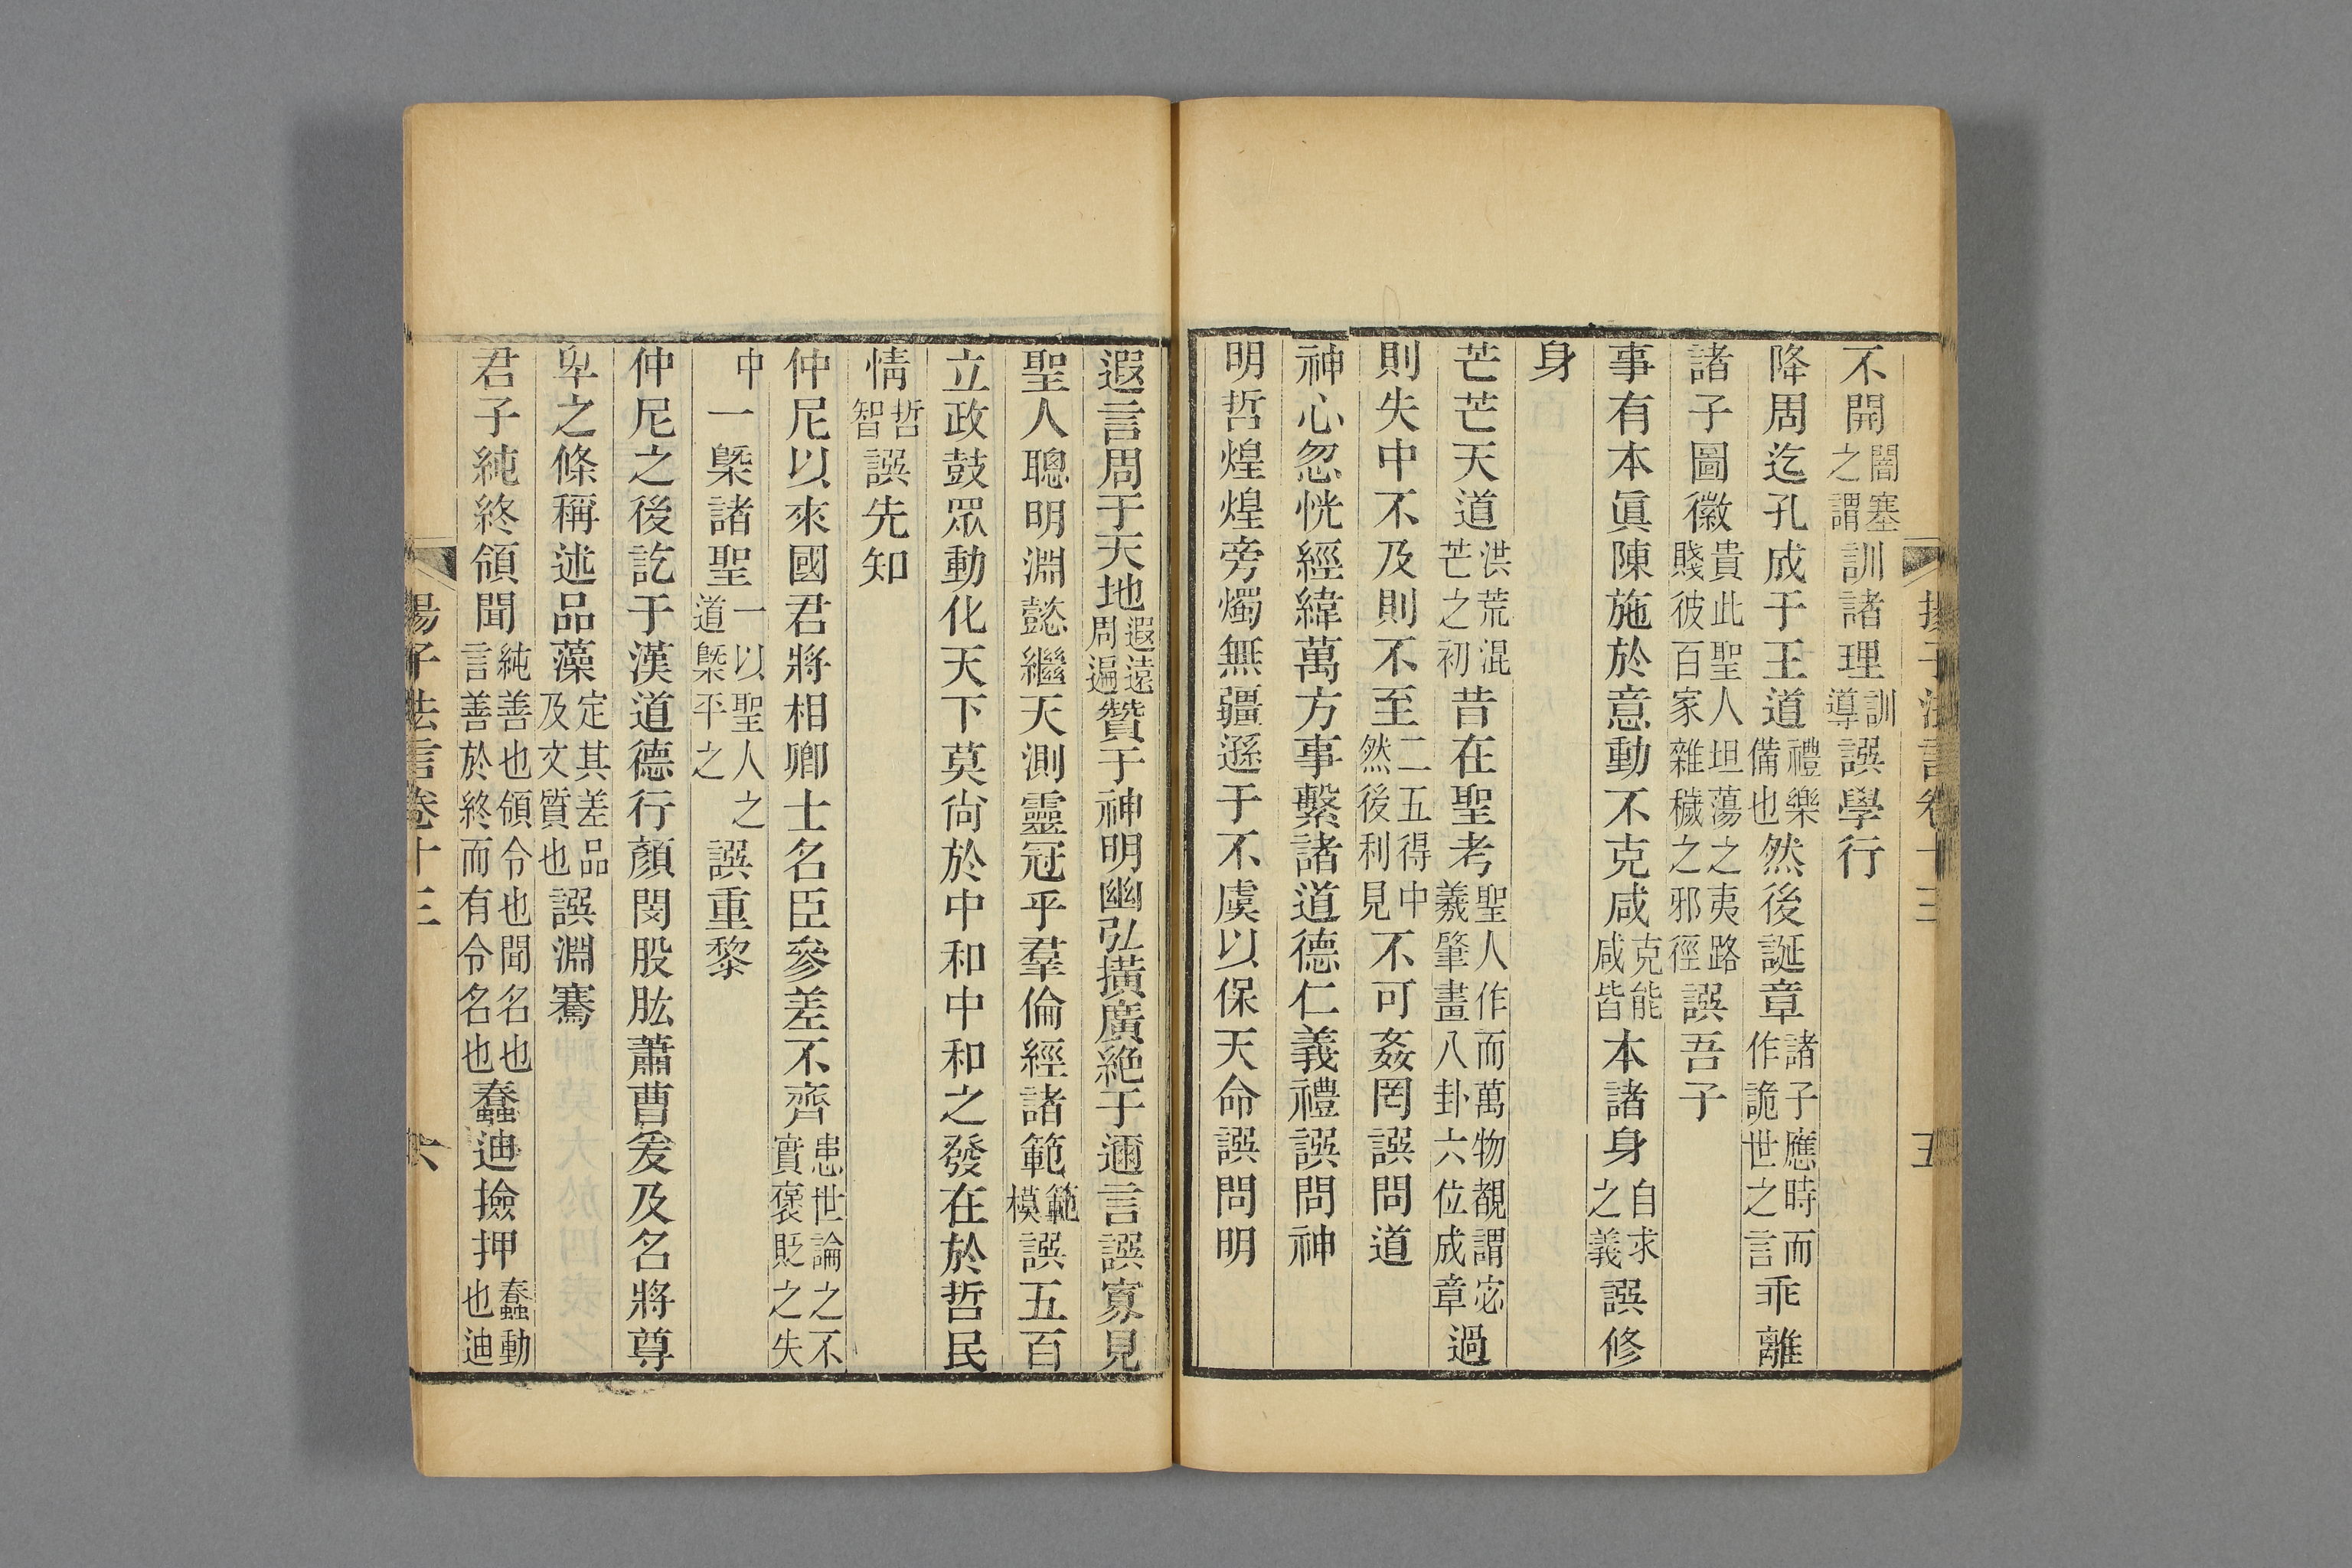 揚子法言卷十三
五
不開闇塞之謂訓諸理訓導譔學行
降周迄孔成于王道禮樂備也然後誕章諸子應時而作詭世之言乖離
諸子圖徽貴此聖人坦蕩之夷路賤彼百家雜穢之邪徑譔吾子
事有本眞陳施於意動不克咸克能咸皆本諸身自求之義譔修
身
芒芒天道洪荒混芒之初昔在聖考聖人作而萬物覩謂宓羲肇畫八卦六位成章過
則失中不及則不至二五得中然後利見不可姦罔譔問道
神心忽恍經緯萬方事繫諸道德仁義禮譔問神
明哲煌煌旁燭無疆遜于不虞以保天命譔問明
遐言周于天地遐遠周遍贊于神明幽弘撗廣絶于邇言譔寡見
聖人聰明淵懿繼天測靈冠乎羣倫經諸範範模譔五百
立政鼓眾動化天下莫尙於中和中和之發在於哲民
情哲智譔先知
仲尼以來國君將相卿士名臣參差不齊患世論之不實褒貶之失
中一槩諸聖一以聖人之道槩平之譔重黎
仲尼之後訖于漢道德行顏閔股肱蕭曹爰及名將尊
卑之條稱述品藻定其差品及文質也譔淵騫
君子純終領聞純善也領令也聞名也言善於終而有令名也蠢迪撿押蠢動也迪
揚子法言卷十三
六